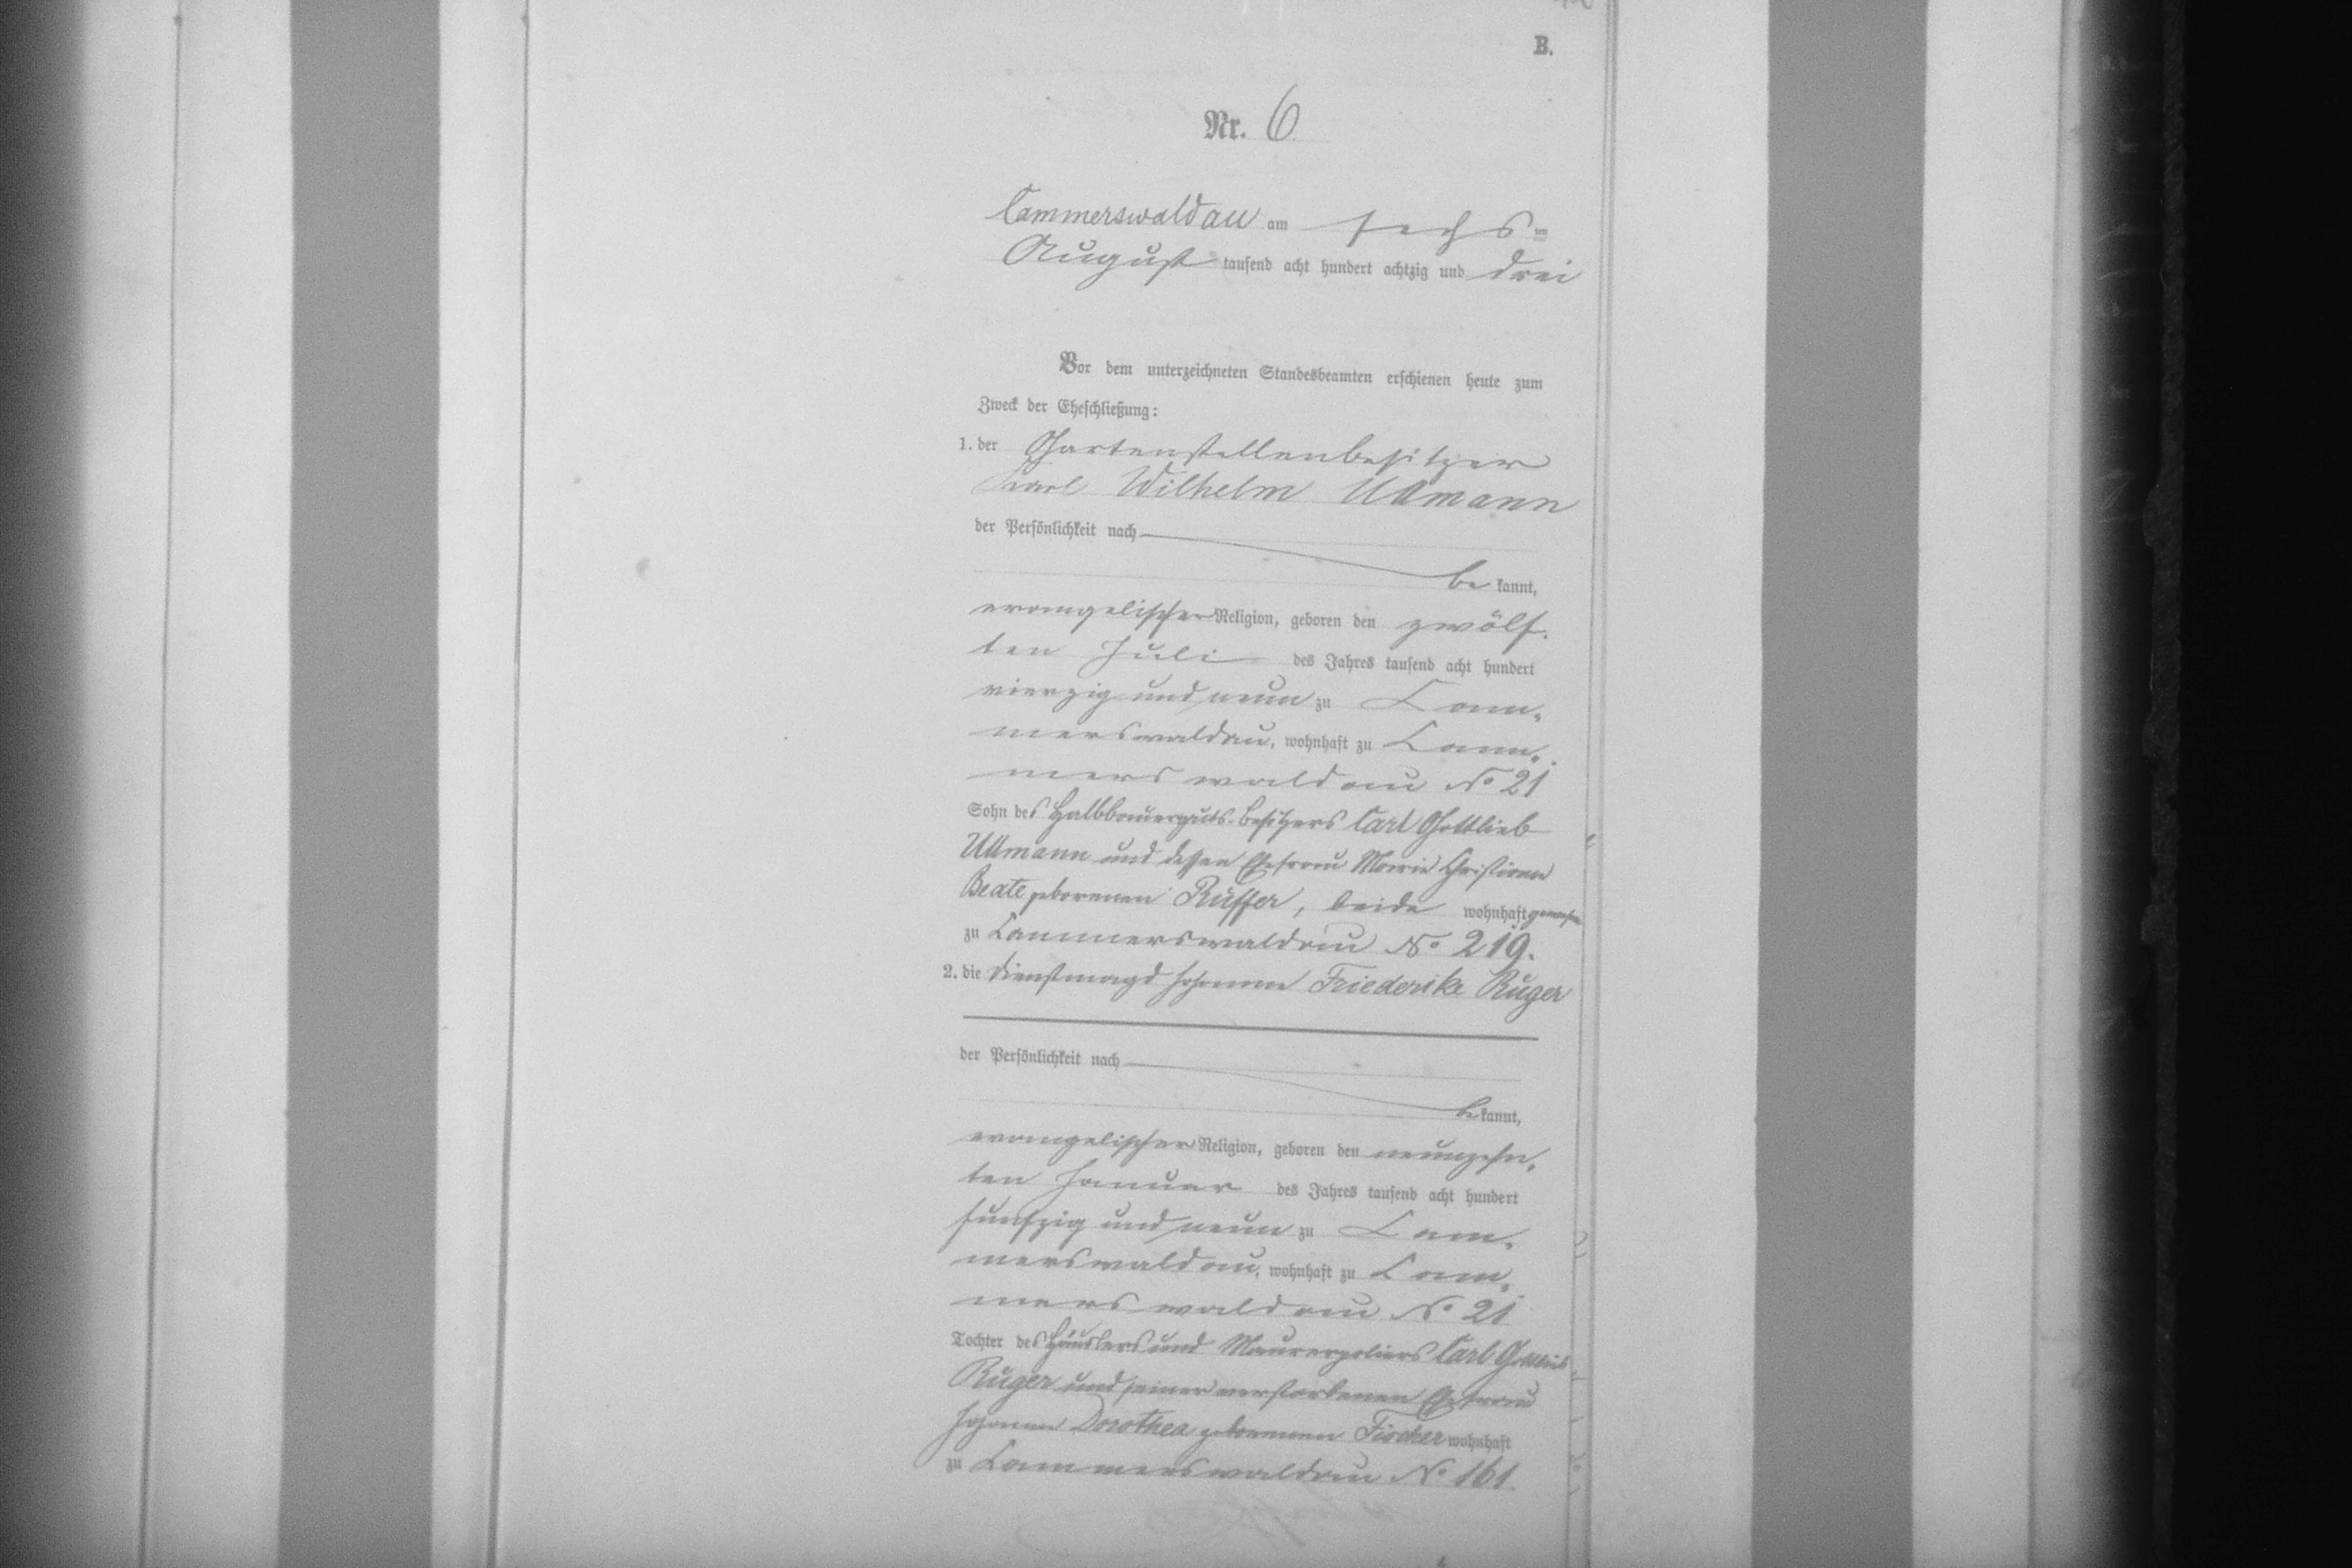 B.
Nr. 6.
Cammerswaldau am sechs ten
August tausend acht hundert achtzig und drei
Vor dem unterzeichneten Standesbeamten erschienen heute zum
Zweck der Eheschließung:
1. der Gartenstellenbesitzer
Karl Wilhelm Ullmann
der Persönlichkeit nach
be kannt,
evangelischer Religion, geboren den zwölf-
ten Juli des Jahres tausend acht hundert
vierzig und neun zu Cam-
merswaldau, wohnhaft zu Cam-
merswaldau No 21
Sohn des Halbbauerguts-besitzers Carl Gottlieb
Ullmann und dessen Ehefrau Marie Christiane
Beate geborenen Rüffer, beide wohnhaft gewesen
zu Cammerswaldau No 219.
2. die Dienstmagd Johanne Friederike Ruger
der Persönlichkeit nach
be kannt,
evangelischer Religion, geboren den neunzehn-
ten Januar des Jahres tausend acht hundert
funfzig und neun zu Cam-
merswaldau, wohnhaft zu Cam-
merswaldau No 21
Tochter des Häuslers und Maurerpoliers Carl Gottlieb
Ruger und seiner verstorbenen Ehefrau
Johanne Dorothea geborenen Fischer wohnhaft
zu Cammerswaldau No 161.